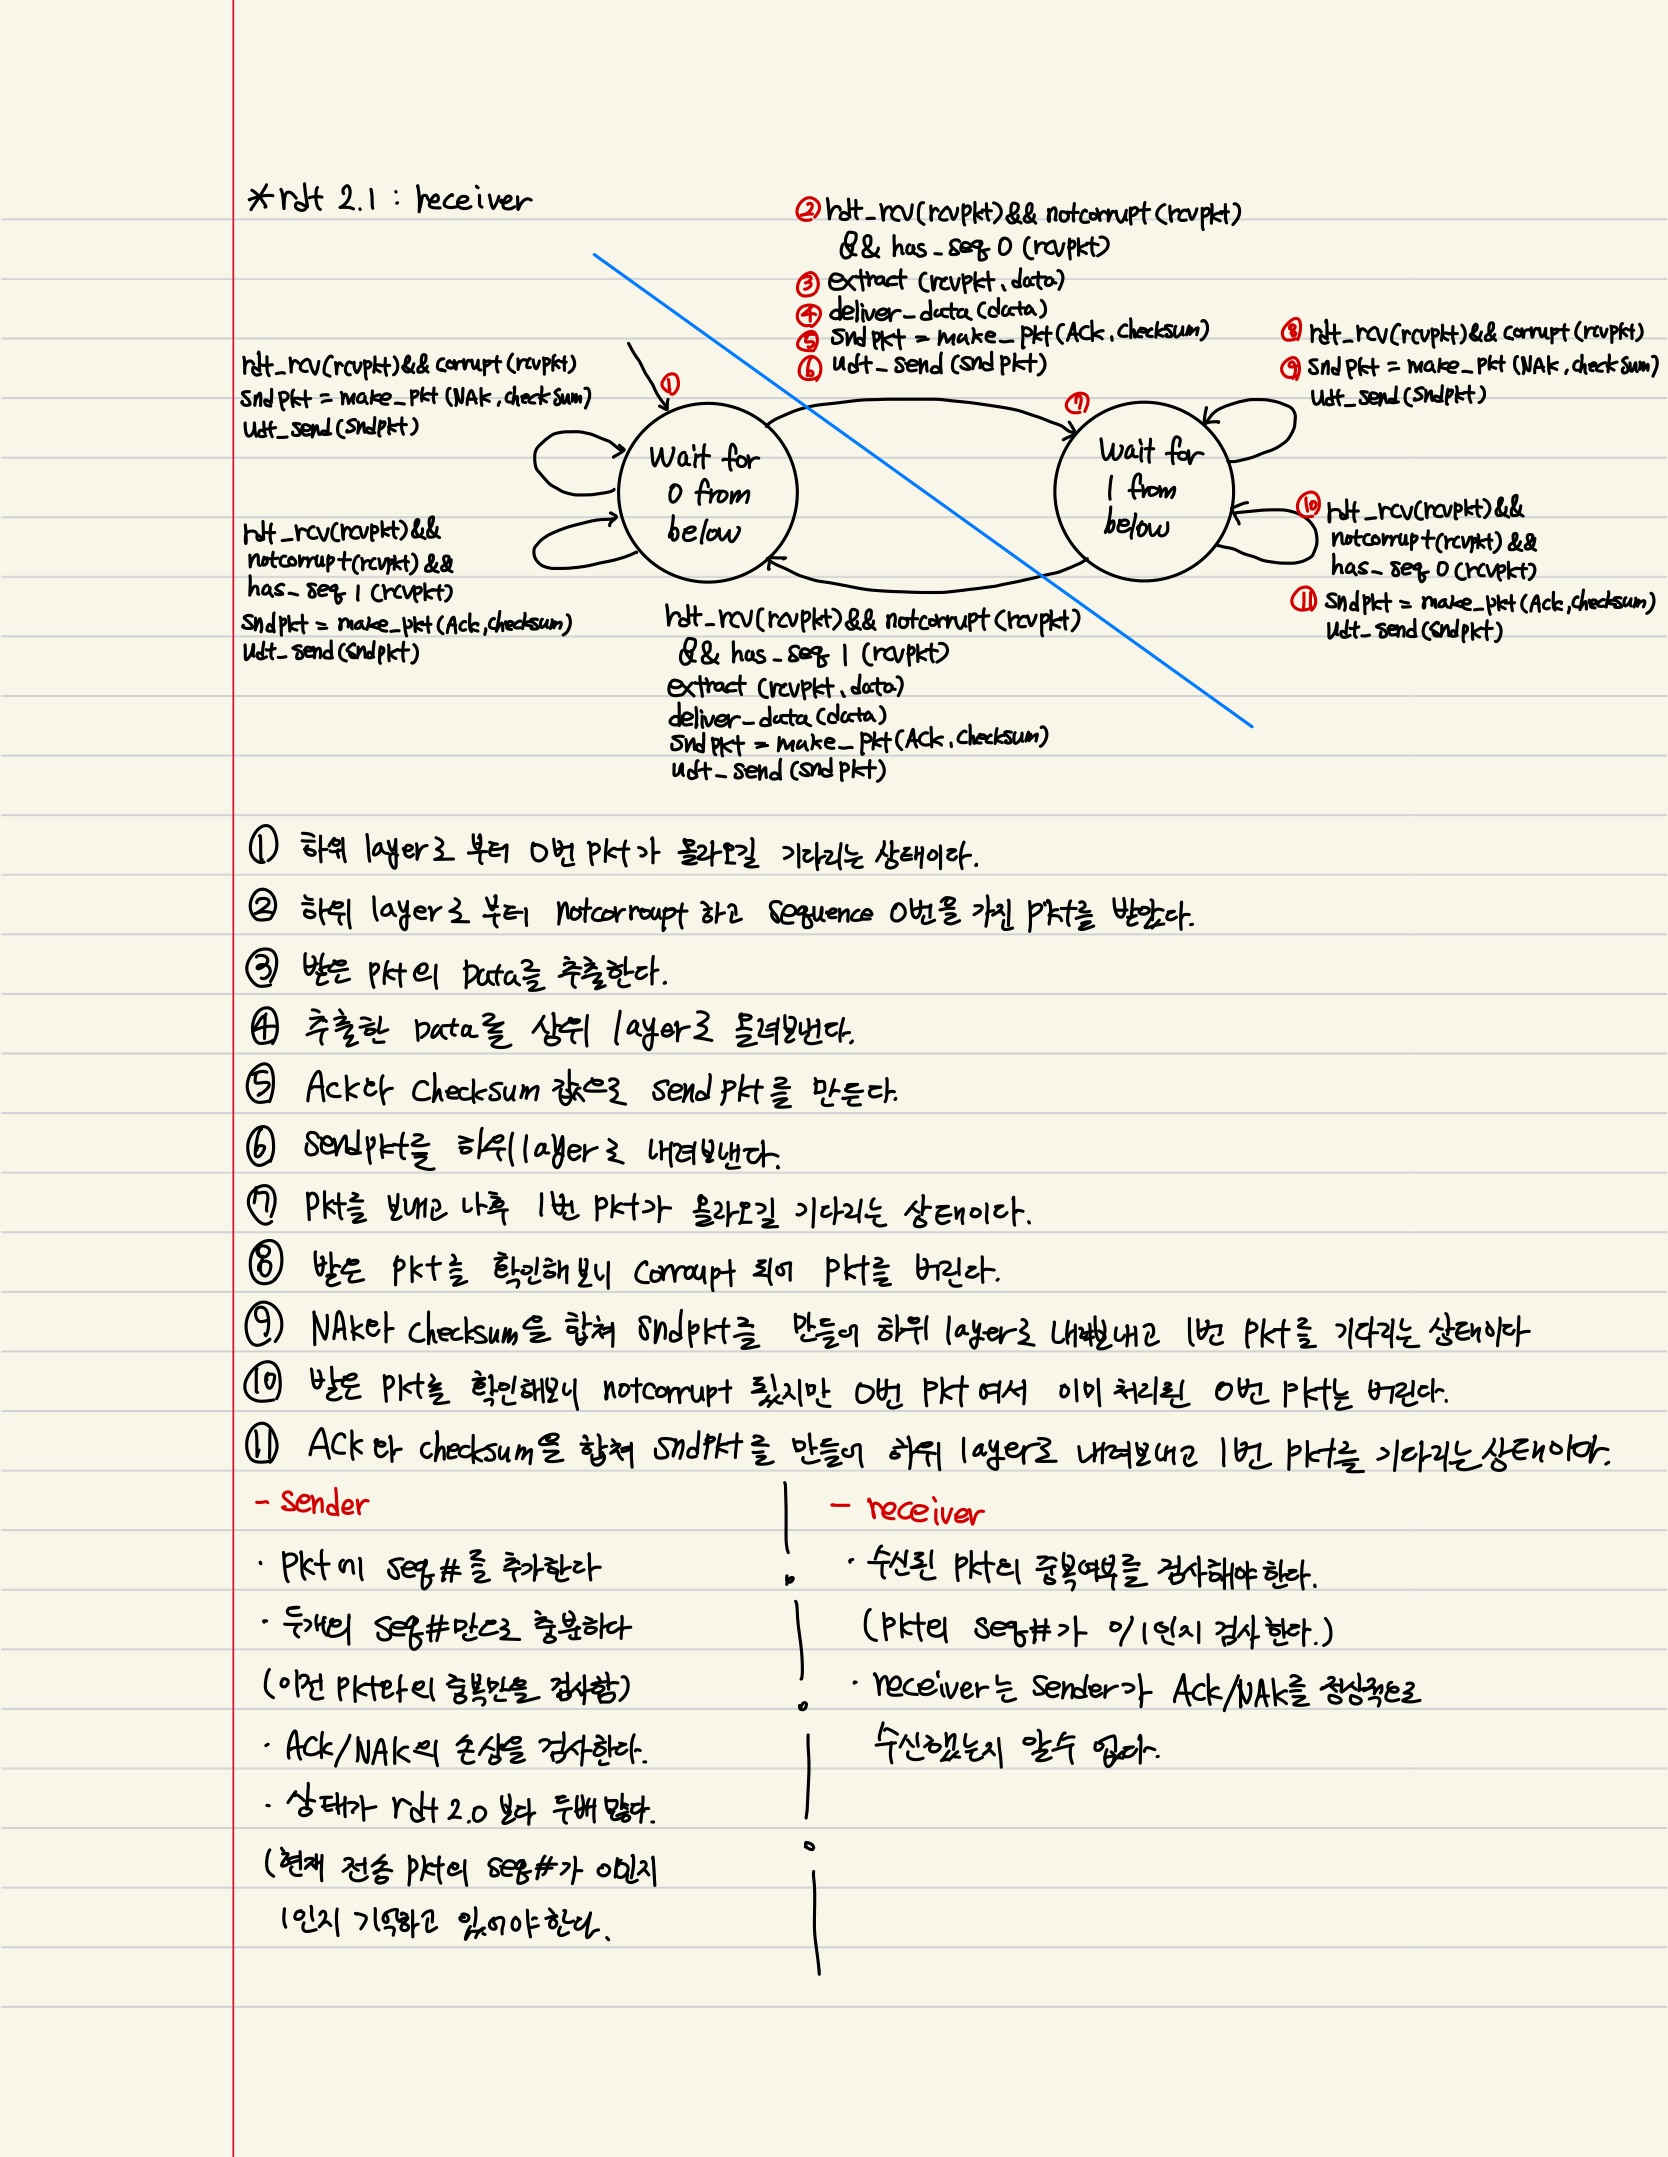 *rdt 2.1 : receiver
② rdt_rcv(rcvpkt) && notcorrupt(rcvpkt)
&& has_seq 0 (rcvpkt)
③ extract (rcvpkt, data)
④ deliver_data(data)
⑤ Sndpkt = make_pkt(Ack, checksum)
⑥ udt_send(sndpkt)
rdt_rcv(rcvpkt) && corrupt(rcvpkt)
Sndpkt = make_pkt(NAK, checkSum)
Udt_send(Sndpkt)
①
⑦
⑧ rdt_rcv(rcvpkt) && corrupt(rcvpkt)
⑨ Sndpkt = make_pkt(NAK, checkSum)
Udt_send(Sndpkt)
Wait for
0 from
below
Wait for
1 from
below
rdt_rcv(rcvpkt) &&
notcorrupt(rcvpkt) &&
has_seq 1 (rcvpkt)
Sndpkt = make_pkt(Ack, checksum)
Udt_send(Sndpkt)
⑩ rdt_rcv(rcvpkt) &&
notcorrupt(rcvpkt) &&
has_seq 0 (rcvpkt)
⑪ Sndpkt = make_pkt(Ack, checksum)
Udt_send(Sndpkt)
rdt_rcv(rcvpkt) && notcorrupt(rcvpkt)
&& has_seq 1 (rcvpkt)
extract (rcvpkt, data)
deliver_data(data)
Sndpkt = make_pkt(Ack, checksum)
udt_send(sndpkt)
① 하위 layer로 부터 0번 pkt가 올라오길 기다리는 상태이다.
② 하위 layer로 부터 notcorroupt 하고 sequence 0번을 가진 pkt를 받았다.
③ 받은 pkt의 Data를 추출한다.
④ 추출한 Data를 상위 layer로 올려보낸다.
⑤ Ack와 Checksum 값으로 send pkt를 만든다.
⑥ Sendpkt를 하위 layer로 내려보낸다.
⑦ pkt를 보내고 나후 1번 pkt가 올라오길 기다리는 상태이다.
⑧ 받은 pkt를 확인해보니 corroupt 되어 pkt를 버린다.
⑨ NAK와 checksum을 합쳐 sndpkt를 만들어 하위 layer로 내려보내고 1번 pkt를 기다리는 상태이다
⑩ 받은 pkt를 확인해보니 notcorrupt 됬지만 0번 pkt 여서 이미 처리된 0번 pkt는 버린다.
⑪ ACK와 checksum을 합쳐 sndpkt를 만들어 하위 layer로 내려보내고 1번 pkt를 기다리는상태이다.
- sender
· pkt에 seq#를 추가한다
· 두개의 seq#만으로 충분하다
(이전 pkt와의 중복만을 검사함)
· Ack/NAK의 손상을 검사한다.
· 상태가 rdt 2.0 보다 두배 많다.
(현재 전송 pkt의 seq#가 0인지
1인지 기억하고 있어야 한다.
- receiver
· 수신된 pkt의 중복여부를 검사해야 한다.
(pkt의 seq#가 0/1인지 검사한다.)
· receiver는 sender가 Ack/NAK를 정상적으로
수신했는지 알수 없다.